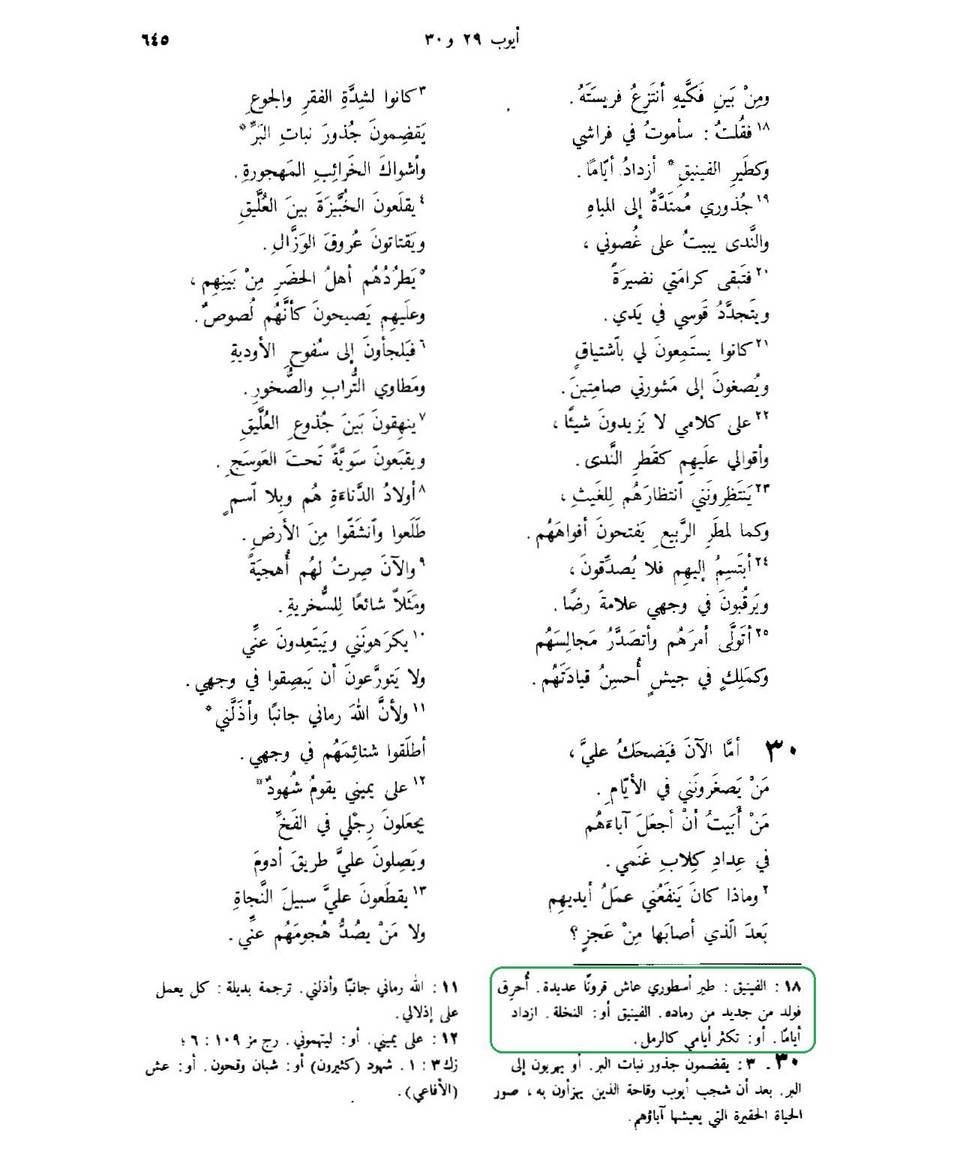 أيوب ٢٩ و ٣٠
٦٤٥
ومِنْ بَينِ فَكَّيهِ أنتَزِعُ فريستَهُ.
١٨ فقُلتُ: سأموتُ في فراشي
وكطَيرِ الفينيقِ* أزدادُ أيّامًا.
١٩ جُذوري مُمتَدَّةٌ إلى المياهِ
والنَّدى يبيتُ على غُصوني،
٢٠ فتَبقى كرامَتي نضيرَةً
ويتَجدَّدُ قَوسي في يَدي.
٢١ كانوا يستَمِعونَ لي بآشتياقٍ
ويُصغونَ إلى مَشورتي صامِتينَ.
٢٢ على كلامي لا يَزيدونَ شيئًا،
وأقوالي علَيهِم كقَطرِ النَّدى.
٢٣ يَنتَظِرونَني آنتظارَهُم لِلغَيثِ،
وكما لمطَرِ الرَّبيعِ يَفتَحونَ أفواهَهُم.
٢٤ أبتَسِمُ إليهِم فلا يُصدِّقونَ،
ويَرقُبونَ في وجهي علامةَ رضًا.
٢٥ أتَولَّى أمرَهُم وأتصَدَّرُ مَجالِسَهُم
وكمَلِكٍ في جيشٍ أُحسِنُ قيادَتَهُم.
٣٠ أمَّا الآنَ فيَضحَكُ عليَّ،
مَنْ يَصغَرونَني في الأيّامِ.
مَنْ أبَيتُ أنْ أجعَلَ آباءَهُم
في عِدادِ كِلابِ غنَمي.
٢ وماذا كانَ يَنفَعُني عمَلُ أيديهِم
بَعدَ الَّذي أصابَها مِنْ عَجزٍ؟
٣ كانوا لشِدَّةِ الفقرِ والجوعِ
يَقضِمونَ جُذورَ نباتِ البَرِّ*
وأشواكَ الخَرائِبِ المَهجورةِ.
٤ يقلَعونَ الخُبَّيزَةَ بينَ العُلَّيقِ
ويَقتاتونَ عُروقَ الوَزَّالِ.
٥ يَطرُدُهُم أهلُ الحضَرِ مِنْ بَينِهِم،
وعلَيهِم يَصيحونَ كأنَّهُم لُصوصٌ.
٦ فيَلجأونَ إلى سُفوحِ الأوديةِ
ومَطاوي التُّرابِ والصُّخورِ.
٧ ينهِقونَ بَينَ جُذوعِ العُلَّيقِ
ويقبَعونَ سَويَّةً تَحتَ العَوسَجِ.
٨ أولادُ الدَّناءَةِ هُم وبِلا آسمٍ
طَلَعوا وآنشَقُّوا مِنَ الأرضِ.
٩ والآنَ صِرتُ لهُم أُهجيَةً
ومَثَلاً شائعًا لِلسُّخريةِ.
١٠ يكرَهونَني ويَبتَعِدونَ عنِّي
ولا يَتورَّعونَ أن يَبصِقوا في وجهي.
١١ ولأنَّ اللهَ رماني جانبًا وأذَلَّني*
أطلَقوا شتائِمَهُم في وجهي.
١٢ على يميني يقومُ شُهودٌ*
يجعَلونَ رِجْلي في الفَخِّ
ويَصِلونَ عليَّ طريقَ أدومَ
١٣ يقطَعونَ عليَّ سبيلَ النَّجاةِ
ولا مَنْ يصُدُّ هُجومَهُم عنِّي.
١٨: الفينيق: طير أسطوري عاش قرونًا عديدة. أُحرق
فولد من جديد من رماده. الفينيق أو: النخلة. ازداد
أيامًا. أو: تكثر أيامي كالرمل.
٣٠. ٣: يقضمون جذور نبات البر. أو يهربون إلى
البر. بعد أن شجب أيوب وقاحة الذين يهزأون به، صور
الحياة الحقيرة التي يعيشها آباؤهم.
١١: الله رماني جانبًا وأذلني. ترجمة بديلة: كل يعمل
على إذلالي.
١٢: على يميني. أو: ليتهموني. رج مز ١٠٩: ٦؛
زك ٣: ١. شهود (كثيرون) أو: شبان وقحون. أو: عش
(الأفاعي).